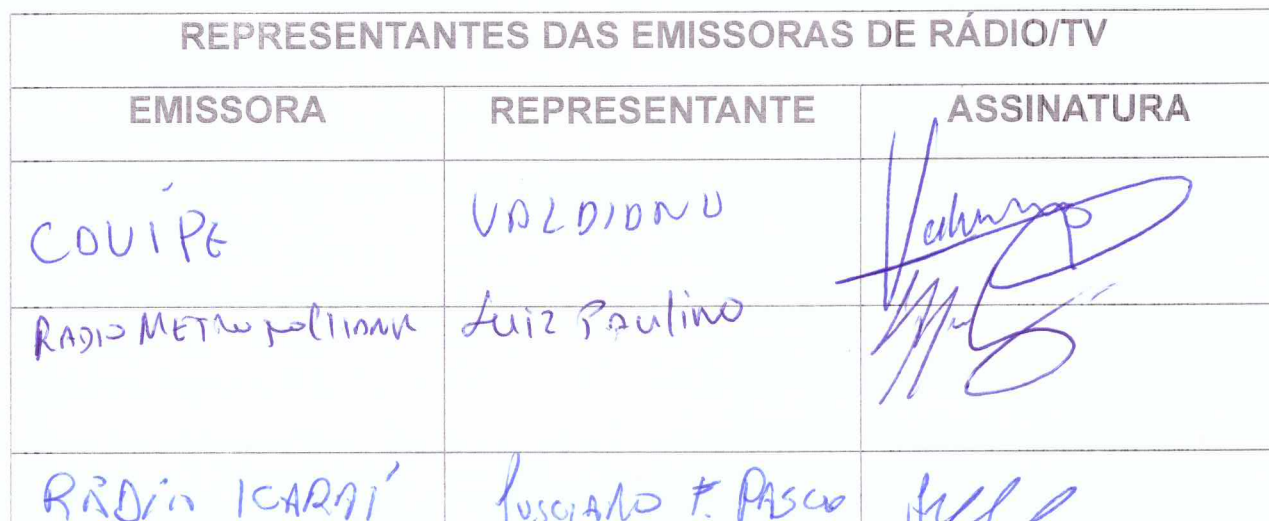 REPRESENTANTES DAS EMISSORAS DE RÁDIO/TV
EMISSORA REPRESENTANTE ASSINATURA
VALDIANO
RADIO METROPOLITANA Luiz Paulino
RÁDIO ICARAÍ F.